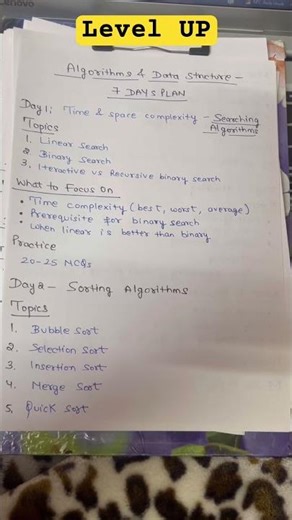 Lenovo
Level UP
Algorithms & Data Structure -
7 DAYs PLAN
Day 1: Time & space complexity - Searching
Algorithms
Topics
1. Linear search
2. Binary Search
3. Iteractive vs Recursive binary search
What to Focus On
• Time complexity (best, worst, average)
• Prerequisite for binary search
when linear is better than binary
Practice
20-25 MCQs
Day 2 - Sorting Algorithms
Topics
1. Bubble Sort
2. Selection Sort
3. Insertion Sort
4. Merge Sort
5. Quick Sort